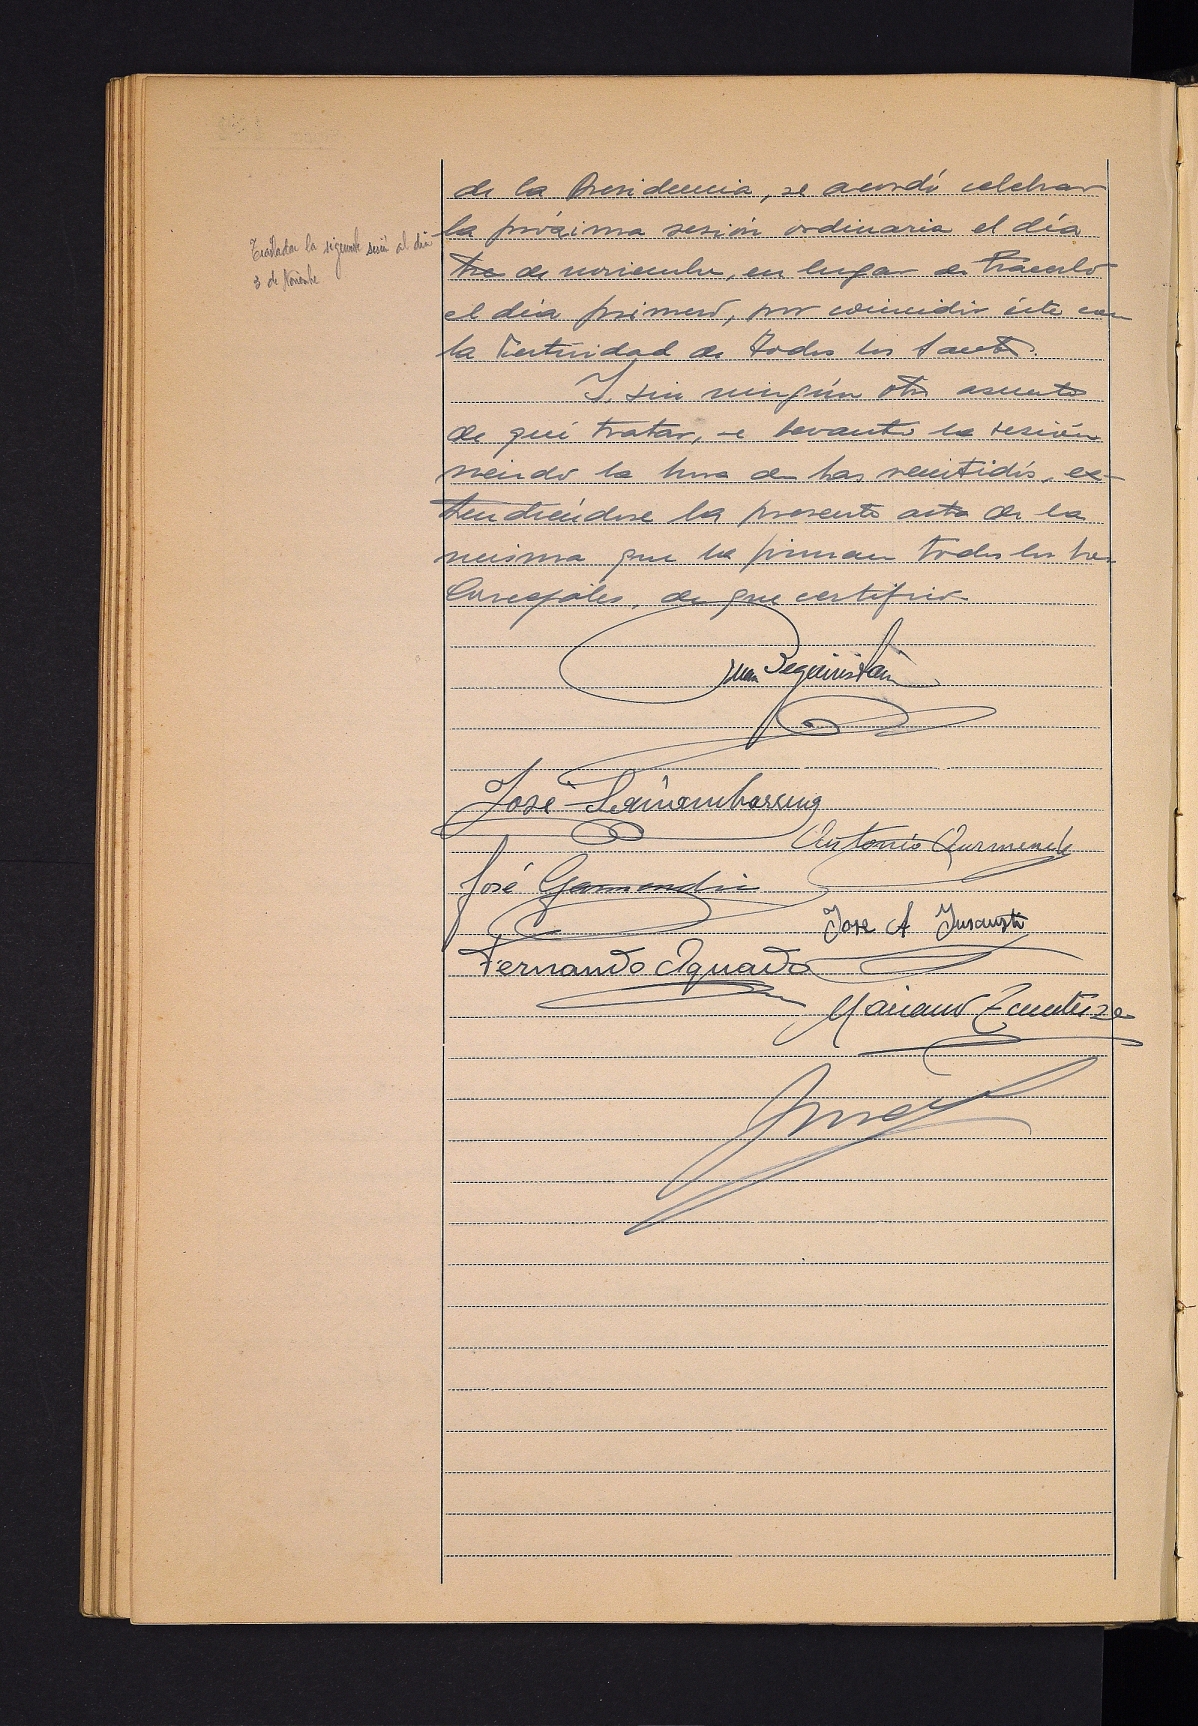 de la Presidencia, se acordó celebrar
la próxima sesión ordinaria el día
Trasladar la siguiente sesión al día
3 de Noviembre
tres de noviembre, en lugar de hacerlo
el día primero, por coincidir éste con
la Festividad de Todos los Santos.
Y sin ningún otro asunto
de qué tratar, se levantó la sesión
siendo la hora de las veintidós, ex-
tendiéndose la presente acta de la
misma que la firman todos los
Concejales, de que certifico.
Juan Beguiristain
José
Antonio
José Garmendia
Jose A Insausti
Fernando Aguado
Mariano